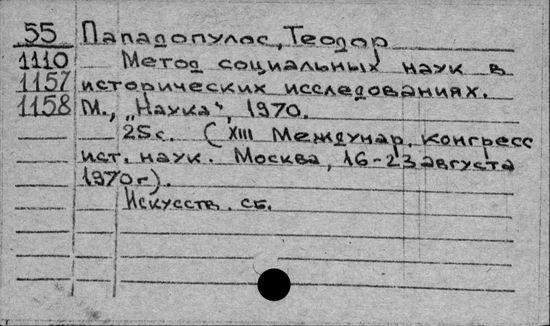 55 Пападопулос, Теодор
1110 Метод социальных наук в
1157 исторических исследованиях.
1158 М., „Наука“, 1970.
25с. (XIII Междунар. конгресс
ист. наук. Москва, 16-23 августа
1970г).
Искусств. сб.